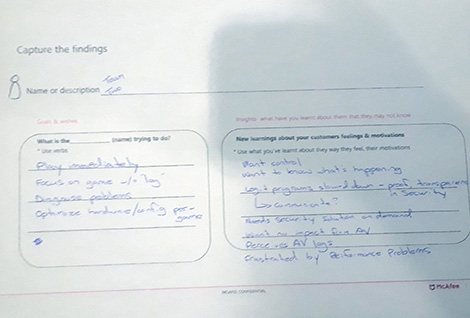 Capture the findings
Team
Name or description
Goals & wishes
Insights: what have you learnt about them that they may not know
What is the (name) trying to do?
* Use verbs
Play immediately
Focus on game w/o "lag"
Diagnose problems
Optimize hardware/config per-
game
New learnings about your customers feelings & motivations
* Use what you've learnt about they way they feel, their motivations
Want control
Want to know what's happening
programs slowed down - proof, transparency
in Security
↳ communicate?
Needs Security Solution on demand
Want no impact from AV
Perceives AV lags
Frustrated by Performance Problems
MCAFEE CONFIDENTIAL
McAfee